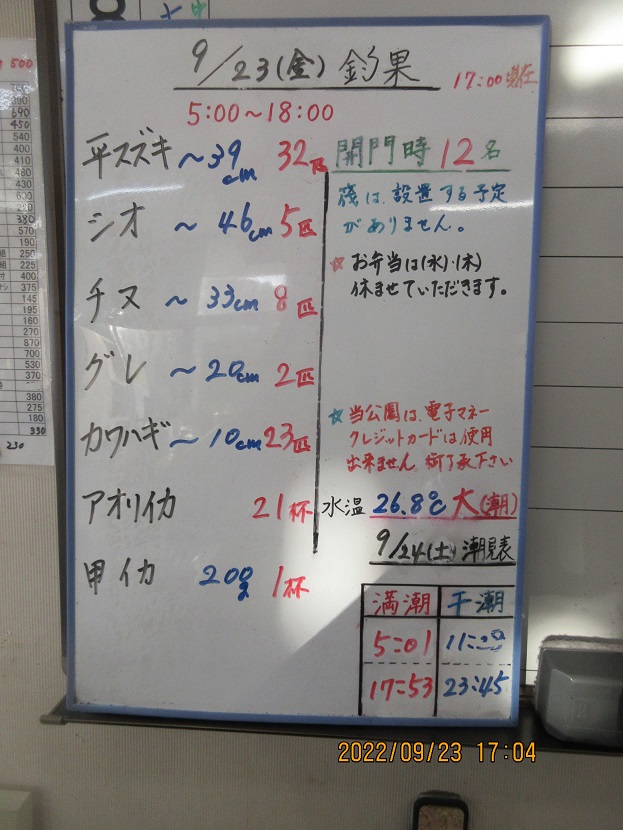 9/23(金) 釣果
17:00 現在
5:00～18:00
平スズキ ～39cm 32匹
シオ ～46cm 5匹
チヌ ～33cm 8匹
グレ ～20cm 2匹
カワハギ ～10cm 23匹
アオリイカ 21杯
甲イカ 200g 1杯
開門時 12名
筏は、設置する予定
がありません。
☆ お弁当は(水)・(木)
休ませていただきます。
☆ 当公園は、電子マネー
クレジットカードは使用
出来ません 御了承下さい
水温 26.8℃ 大(潮)
9/24(土) 潮見表
満潮 干潮
5:01
17:53 23:45
2022/09/23 17:04